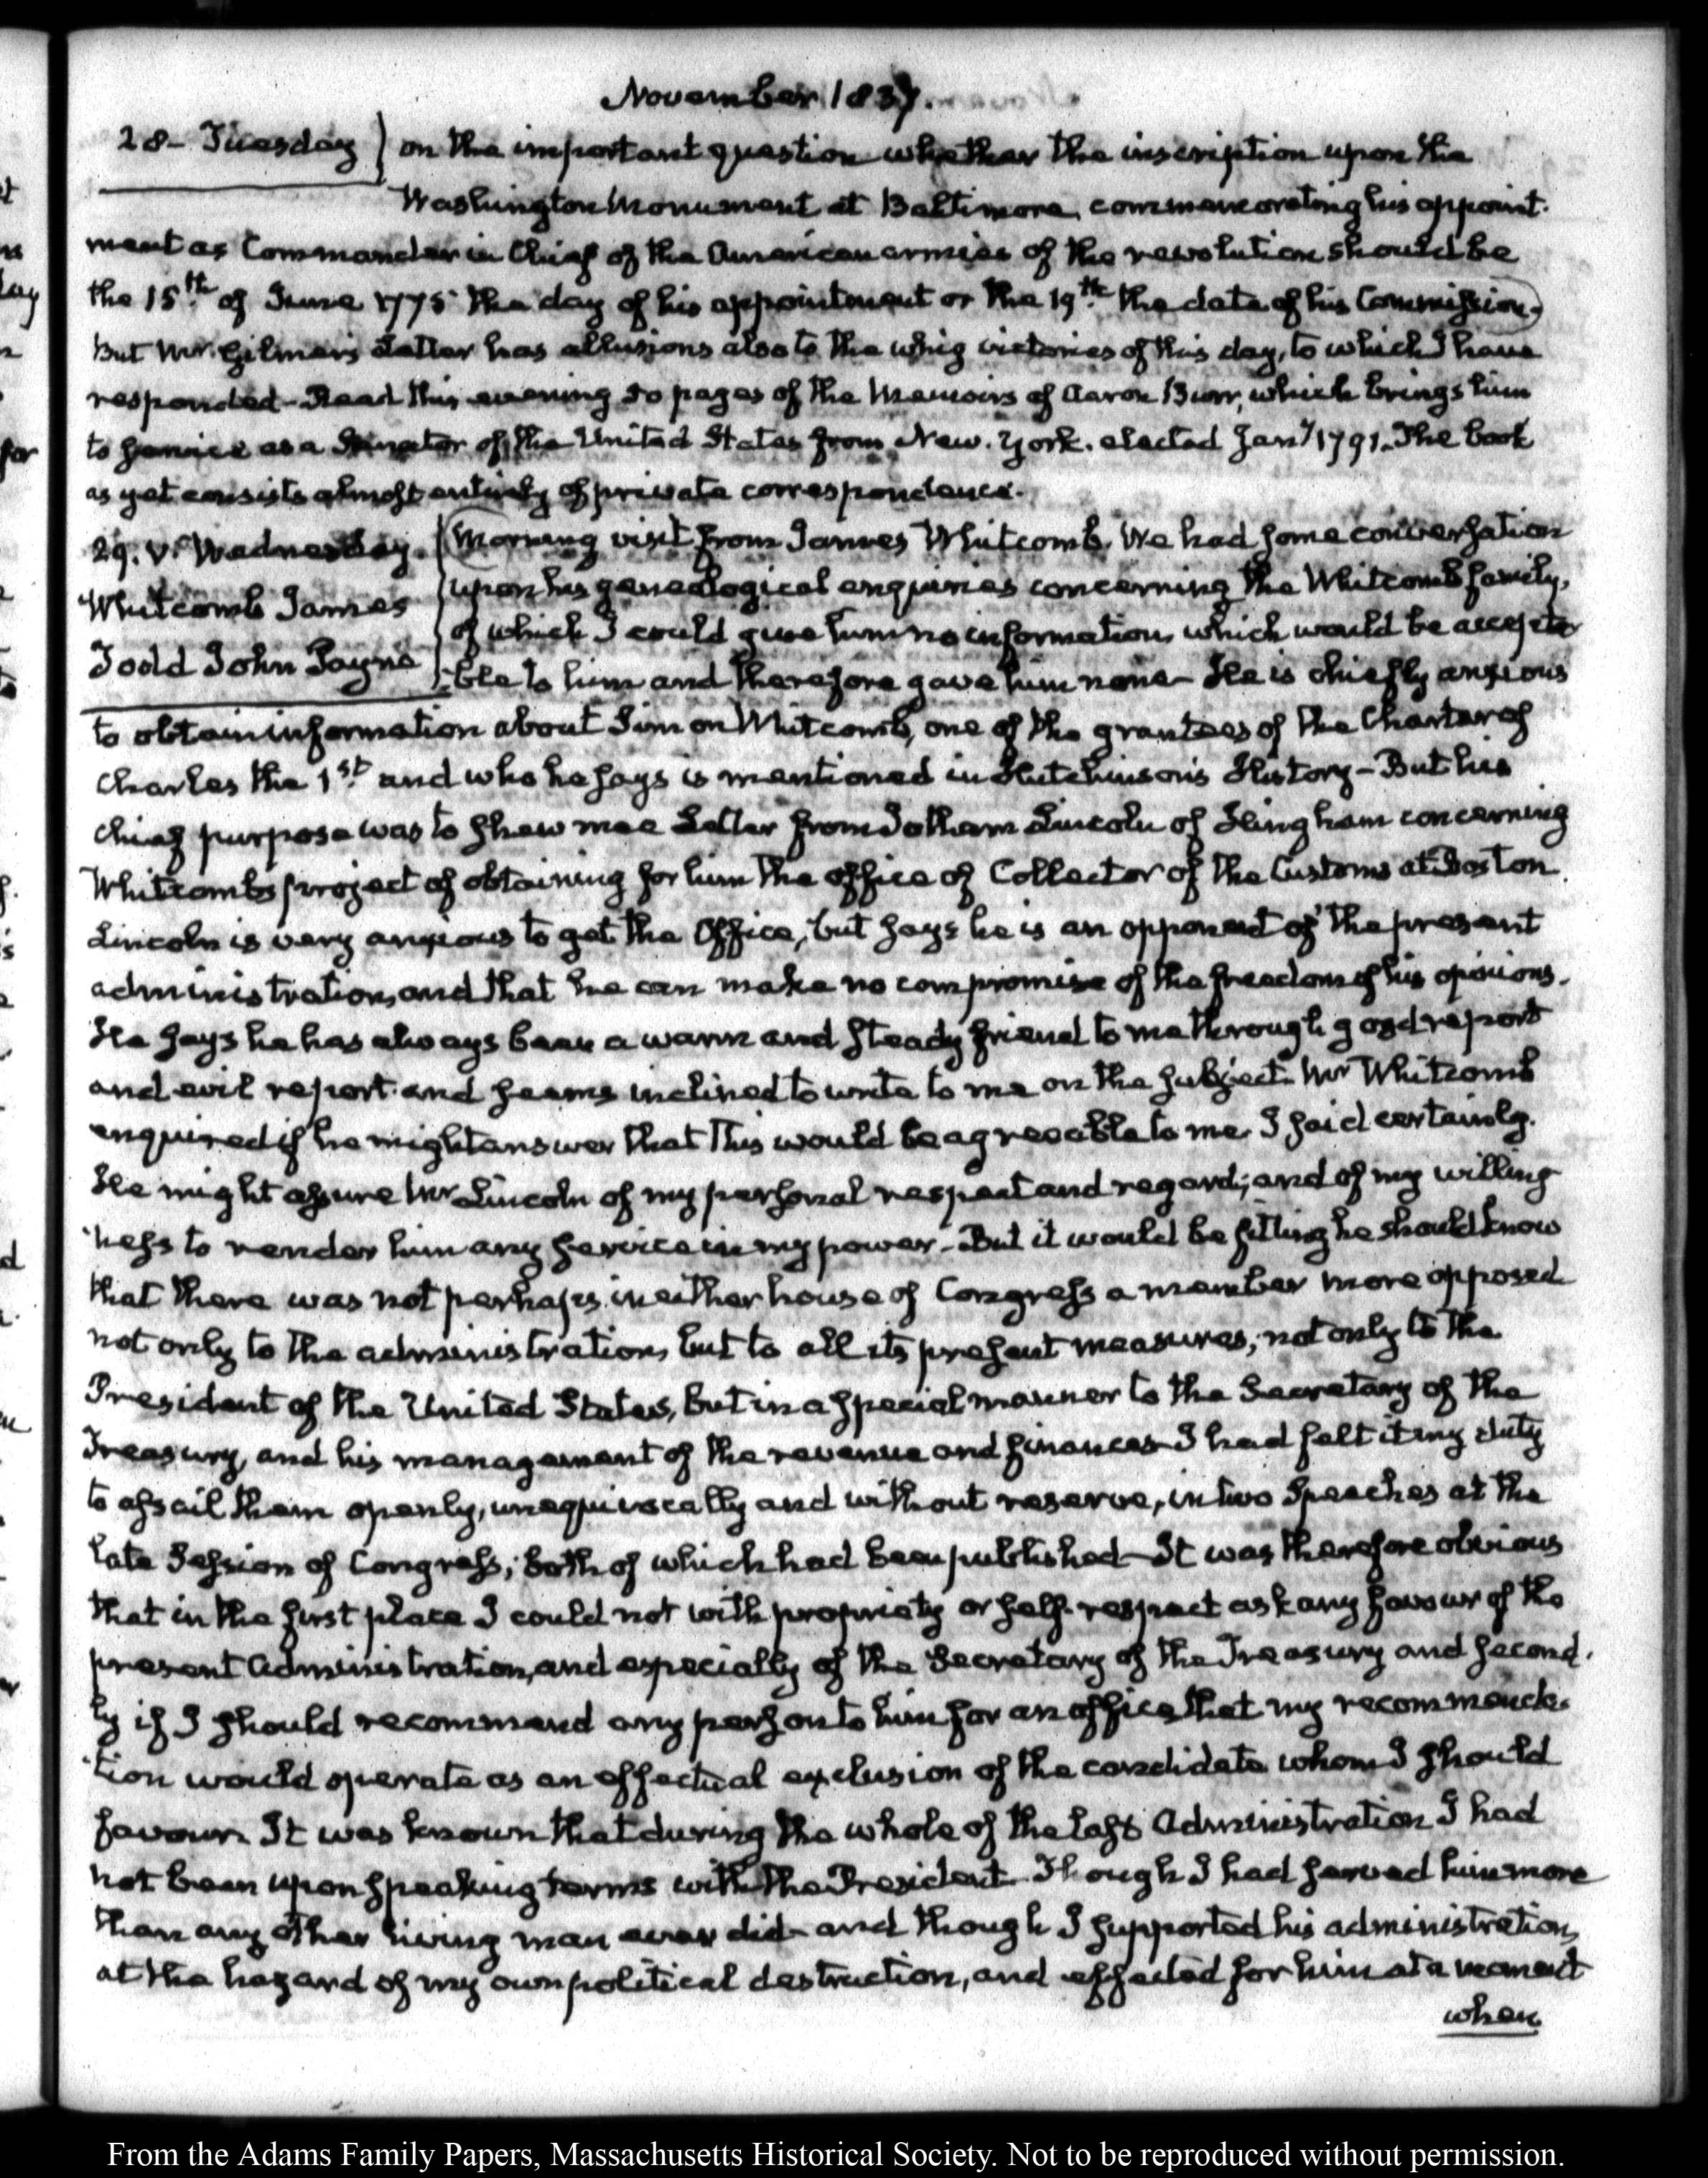 November 1837.
28 – Tuesday) on the important question whether the inscription upon the
Washington Monument at Baltimore, commemorating his appoint-
ment as Commander in Chief of the American armies of the revolution should be
the 15th of June 1775 the day of his appointment or the 19th the date of his Commission.
But Mr. Gilmer's Letter has allusions also to the whig victories of this day, to which I have
responded – Read this evening 50 pages of the Memoirs of Aaron Burr, which brings him
to service as a Senator of the United States from New-York, elected Jany 1791. The book
as yet consists almost entirely of private correspondence.
29. V. Wednesday. Morning visit from James Whitcomb. We had some conversation
upon his genealogical enquiries concerning the Whitcomb family,
Whitcomb James
of which I could give him no information, which would be accepta-
Todd John Payne
-ble to him and therefore gave him none – He is chiefly anxious
to obtain information about Simon Whitcomb, one of the grantees of the Charter of
Charles the 1st and who he says is mentioned in Hutchinson's History – But his
chief purpose was to shew me a Letter from Jotham Lincoln of Hingham concerning
Whitcombs project of obtaining for him the office of Collector of the Customs at Boston.
Lincoln is very anxious to get the Office, but says he is an opponent of the present
administration, and that he can make no compromise of the freedom of his opinions.
He says he has always been a warm and steady friend to me through good report
and evil report and seems inclined to write to me on the subject. Mr Whitcomb
enquired if he might answer that this would be agreeable to me. I said certainly.
He might assure Mr Lincoln of my personal respect and regard; and of my willing
-ness to render him any service in my power – But it would be fitting he should know
that there was not perhaps in either house of Congress a member more opposed
not only to the administration, but to all its present measures; not only to the
President of the United States, but in a special manner to the Secretary of the
Treasury, and his management of the revenue and finances – I had felt it my duty
to assail them openly, unequivocally and without reserve, in two Speeches at the
late Session of Congress; both of which had been published – It was therefore obvious
that in the first place I could not with propriety or self-respect ask any favour of the
present Administration, and especially of the Secretary of the Treasury and second-
ly if I should recommend any person to him for an office that my recommenda-
-tion would operate as an effectual exclusion of the candidate whom I should
favour. It was known that during the whole of the last Administration I had
not been upon speaking terms with the President – Though I had served him more
than any other living man ever did – and though I supported his administration,
at the hazard of my own political destruction, and effected for him at a moment
when
From the Adams Family Papers, Massachusetts Historical Society. Not to be reproduced without permission.